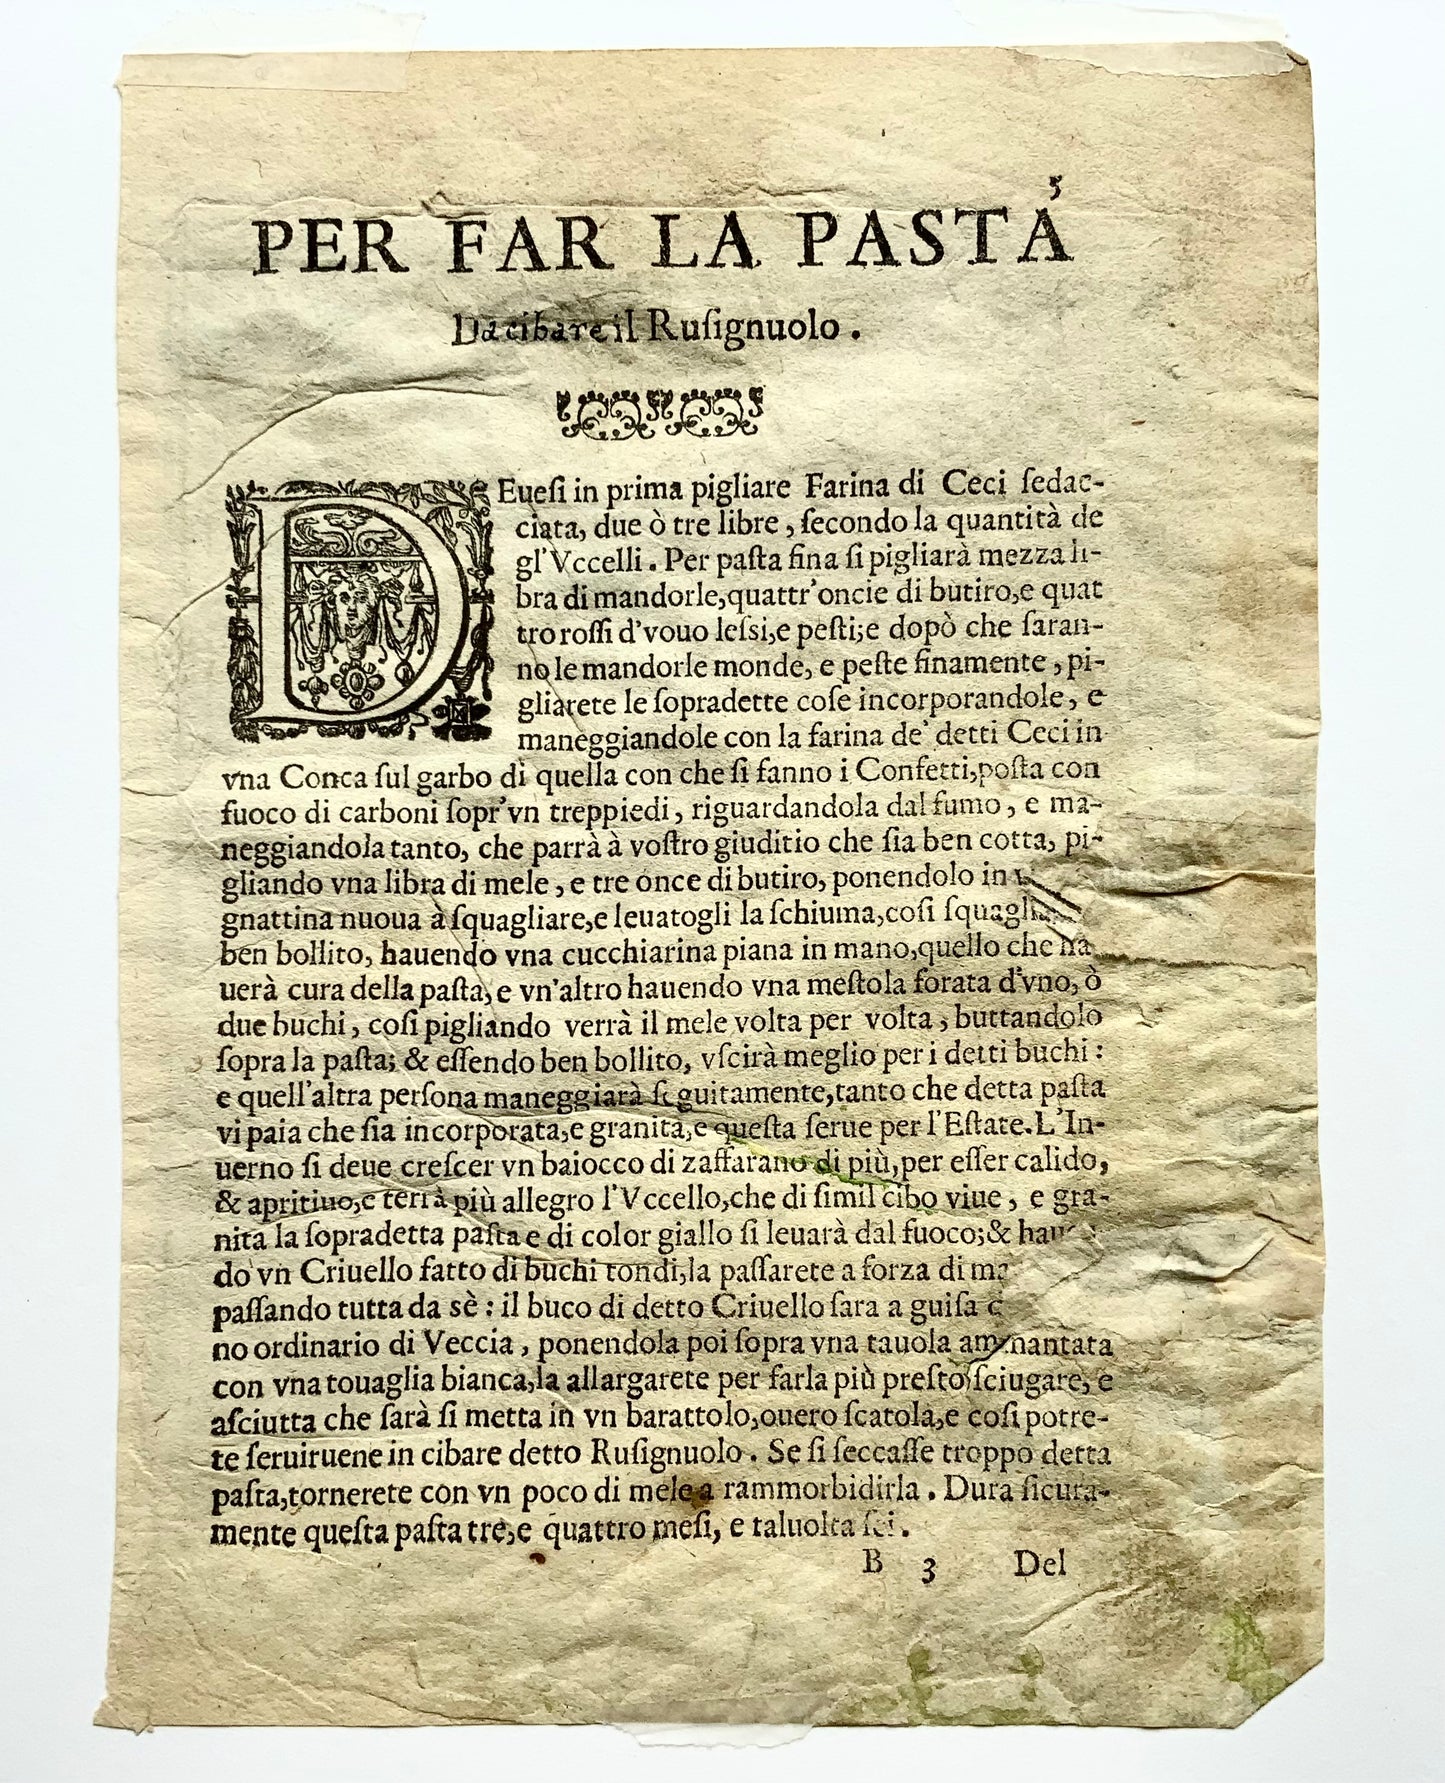 5
PER FAR LA PASTA
Da cibare il Ruſignuolo.
DEueſi in prima pigliare Farina di Ceci ſedac-
ciata, due ò tre libre, ſecondo la quantità de
gl'Vccelli. Per paſta fina ſi pigliarà mezza li-
bra di mandorle, quattr'oncie di butiro, e quat
tro roſſi d'vouo leſsi, e peſti; e dopò che ſaran-
no le mandorle monde, e peſte finamente, pi-
gliarete le ſopradette coſe incorporandole, e
maneggiandole con la farina de' detti Ceci in
vna Conca ſul garbo di quella con che ſi fanno i Confetti, poſta con
fuoco di carboni ſopr'vn treppiedi, riguardandola dal fumo, e ma-
neggiandola tanto, che parrà à voſtro giuditio che ſia ben cotta, pi-
gliando vna libra di mele, e tre once di butiro, ponendolo in
gnattina nuoua à ſquagliare, e leuatogli la ſchiuma, coſi
ben bollito, hauendo vna cucchiarina piana in mano, quello che ha
uerà cura della paſta, e vn'altro hauendo vna meſtola forata d'vno, ò
due buchi, coſi pigliando verrà il mele volta per volta, buttandolo
ſopra la paſta; & eſſendo ben bollito, vſcirà meglio per i detti buchi:
e quell'altra perſona maneggiarà ſeguitamente, tanto che detta paſta
vi paia che ſia incorporata, e granita, e queſta ſerue per l'Eſtate. L'In-
uerno ſi deue creſcer vn baiocco di zaffarano di più, per eſſer calido,
& apritiuo, e terrà più allegro l'Vccello, che di ſimil cibo viue, e gra-
nita la ſopradetta paſta e di color giallo ſi leuarà dal fuoco; &
do vn Criuello fatto di buchi tondi, la paſſarete a forza di
paſſando tutta da sè: il buco di detto Criuello ſara a guiſa
no ordinario di Veccia, ponendola poi ſopra vna tauola ammantata
con vna touaglia bianca, la allargarete per farla più preſto ſciugare, e
aſciutta che ſarà ſi metta in vn barattolo, ouero ſcatola, e coſi potre-
te ſeruiruene in cibare detto Ruſignuolo. Se ſi ſeccaſſe troppo detta
paſta, tornerete con vn poco di mele a rammorbidirla. Dura ſicura-
mente queſta paſta tre, e quattro meſi, e taluolta ſei.
B 3 Del